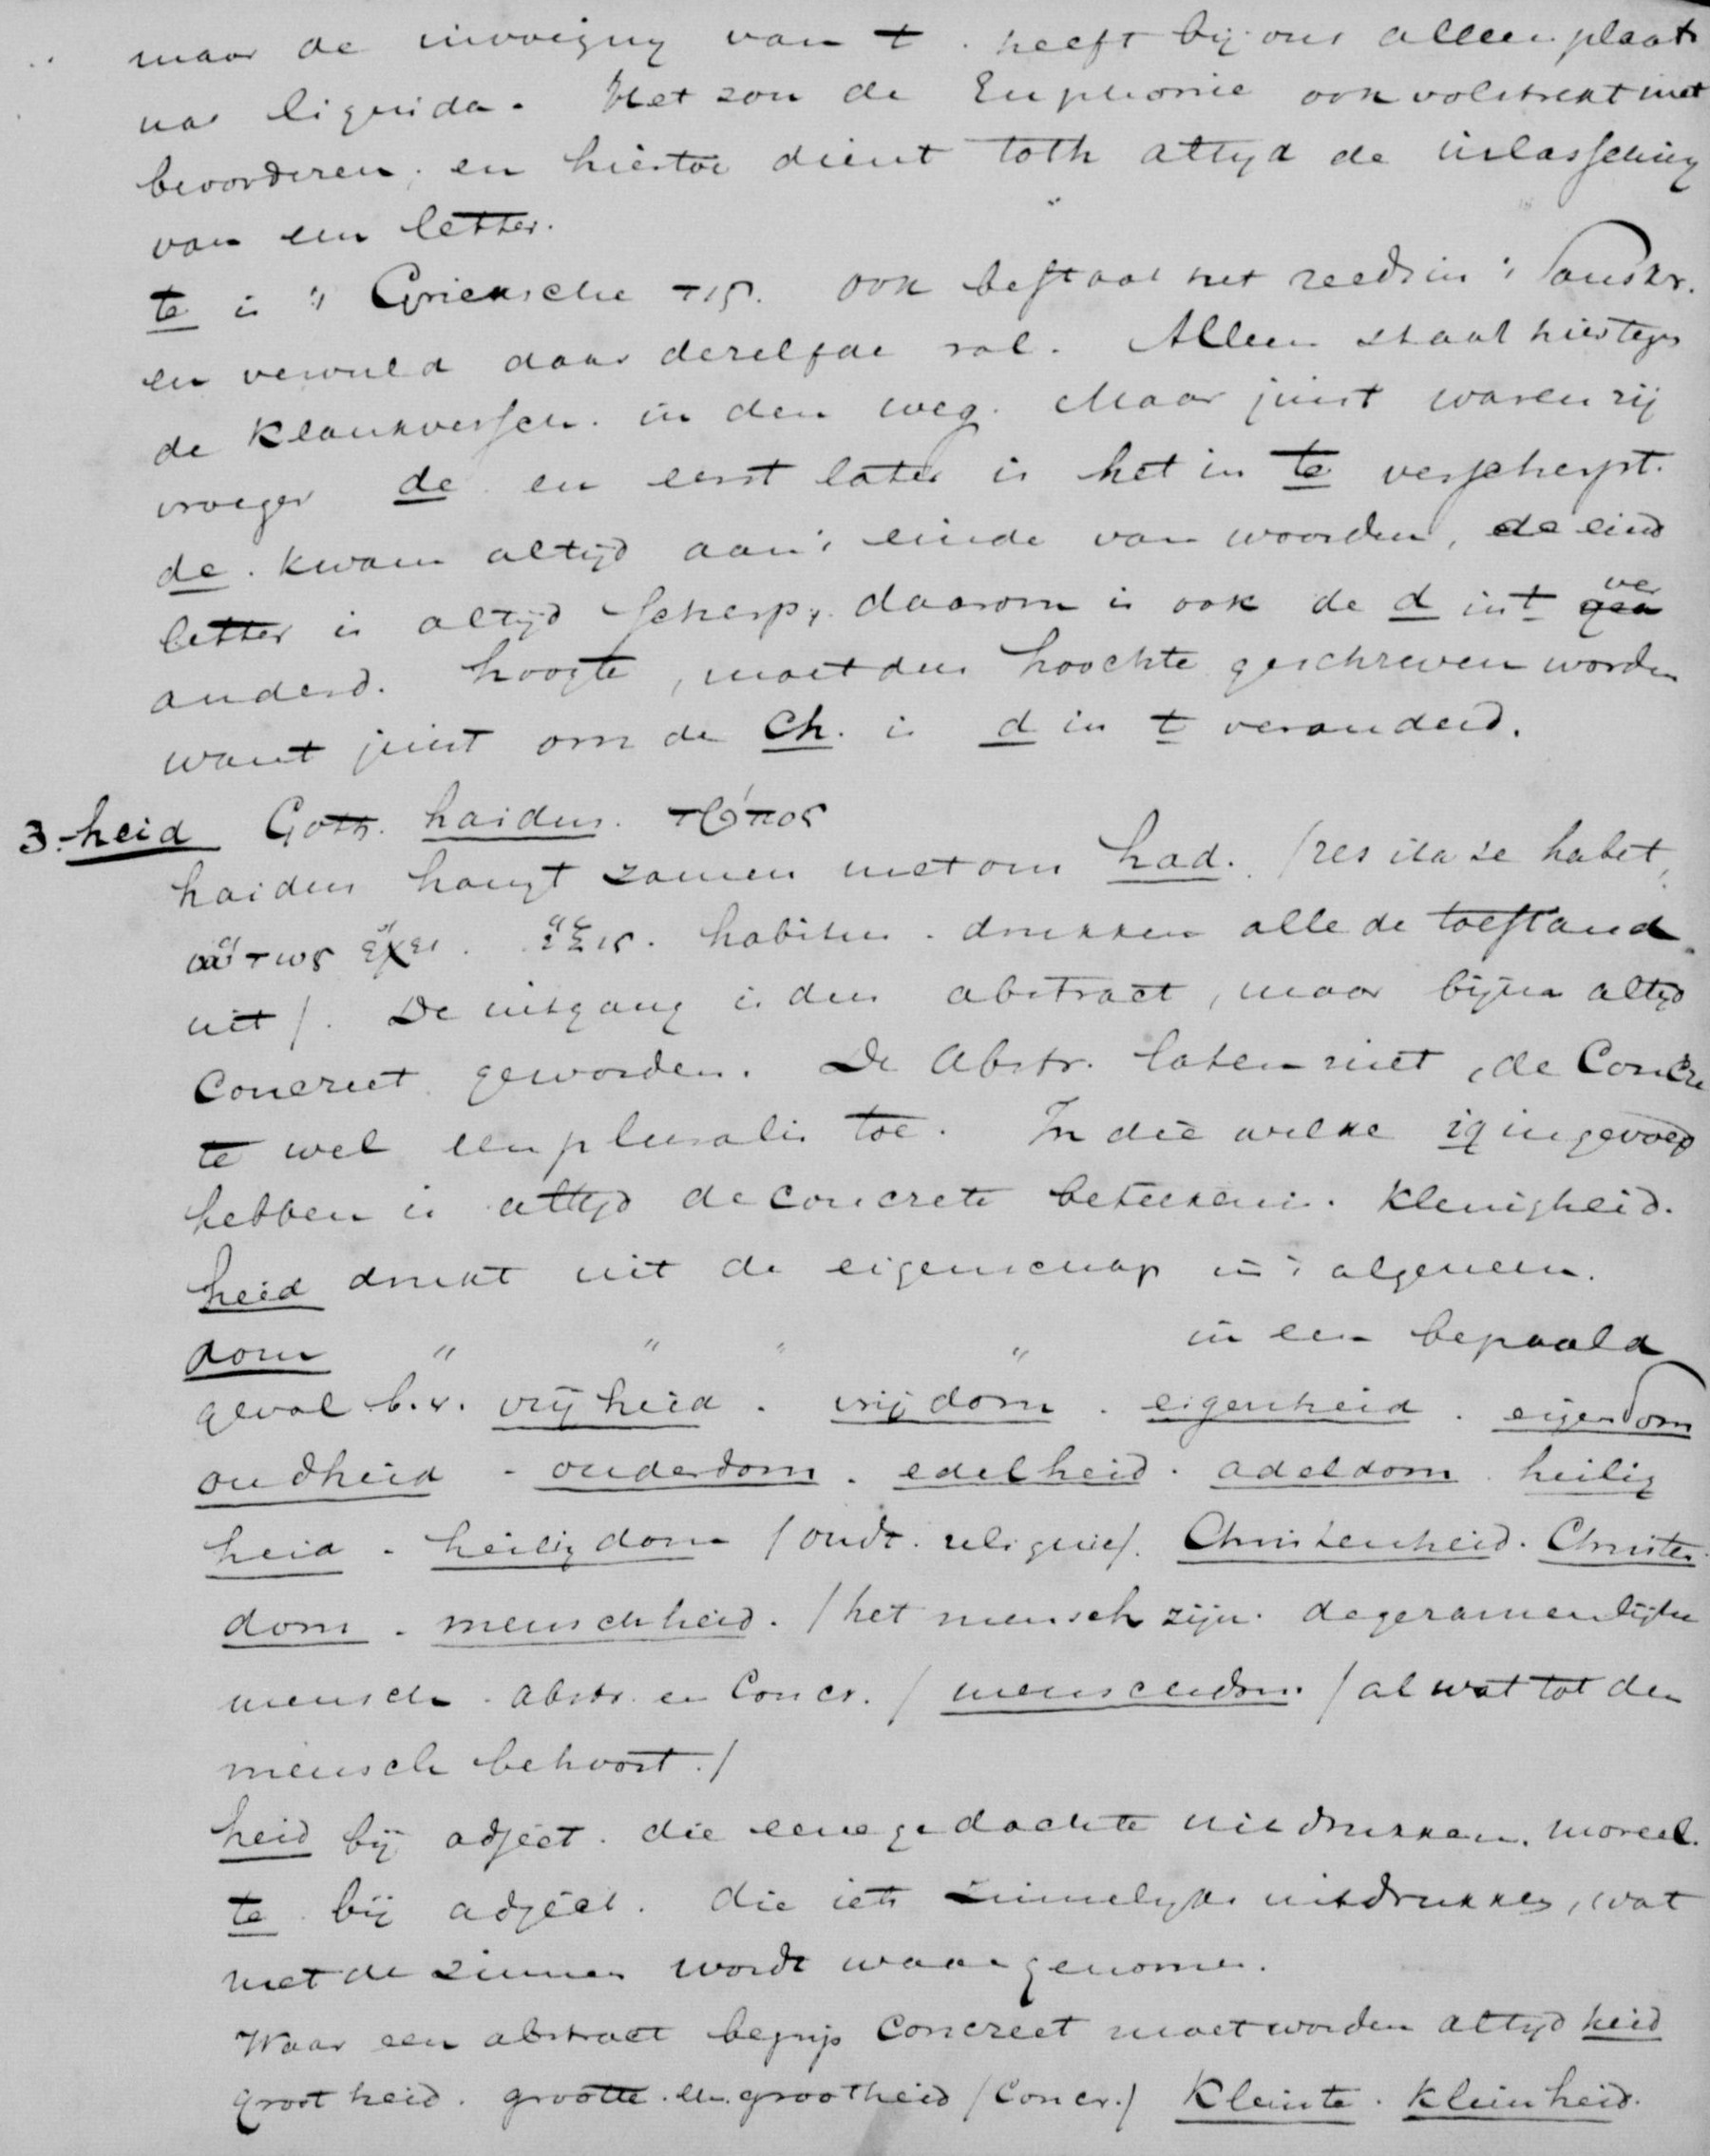 maar de invoeging van t. heeft bij ons alleen plaats
na liquida. Het zou de Euphonie ook volstrekt niet
bevorderen, en hiertoe dient toch altijd de inlassching
van een letter.
te is 's Grieksche τις. ook bestaat het reeds in 's Sanskr.
en vervuld daar dezelfde rol. Alleen staat hiertegen
de Klankversch. in den weg. Maar juist waren zij
vroeger de en eerst later is het in te verscherpt.
de. kwam altijd aan 't einde van woorden, de eind
letter is altijd scherp, daarom is ook de d in t ver
anderd. hoogte, moet dus hoochte geschreven worden
want juist om de Ch. is d in t veranderd.
3. heid Goth. haidus. τρόπος
haidus hangt zamen met ons had. (res ita se habet,
οὕτως ἔχει. ἕξις. habitus. drukken alle de toestand
uit). De uitgang is dus abstract, maar bijna altijd
Concreet geworden. De Abstr. laten niet, de Concre
te wel een pluralis toe. In die welke ig ingevoegd
hebben is altijd de concrete beteekenis. Kleinigheid.
heid drukt uit de eigenschap in 't algemeen.
dom " " " " in een bepaald
geval b.v. vrijheid. vrijdom. eigenheid. eigendom
oudheid - ouderdom. edelheid. adeldom. heilig
heid - heiligdom (oudt. reliquie). Christenheid. Christen
dom. menschheid. (het mensch zijn. de gezamenlijke
mensch. Abstr. en Concr.) menschdom (al wat tot den
mensch behoort.)
heid bij adject. die eene gedachte uitdrukken. moreel.
te bij adject. die iets zinnelijks uitdrukken, wat
met de zinnen wordt waargenomen.
Waar een abstract begrip Concreet moet worden altijd heid
grootheid. grootte en grootheid (Concr.) Kleinte. Kleinheid.